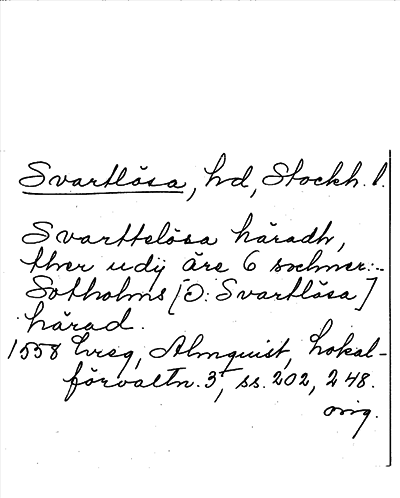 Svartlösa, hd, Stockh. l.
Svarttelösa häradh,
ther udij äre 6 sochner:..
Sotholms [ɔ: Svartlösa]
härad.
1558 Almquist, Lokal-
förvaltn. 3, ss. 202, 248.
orig.